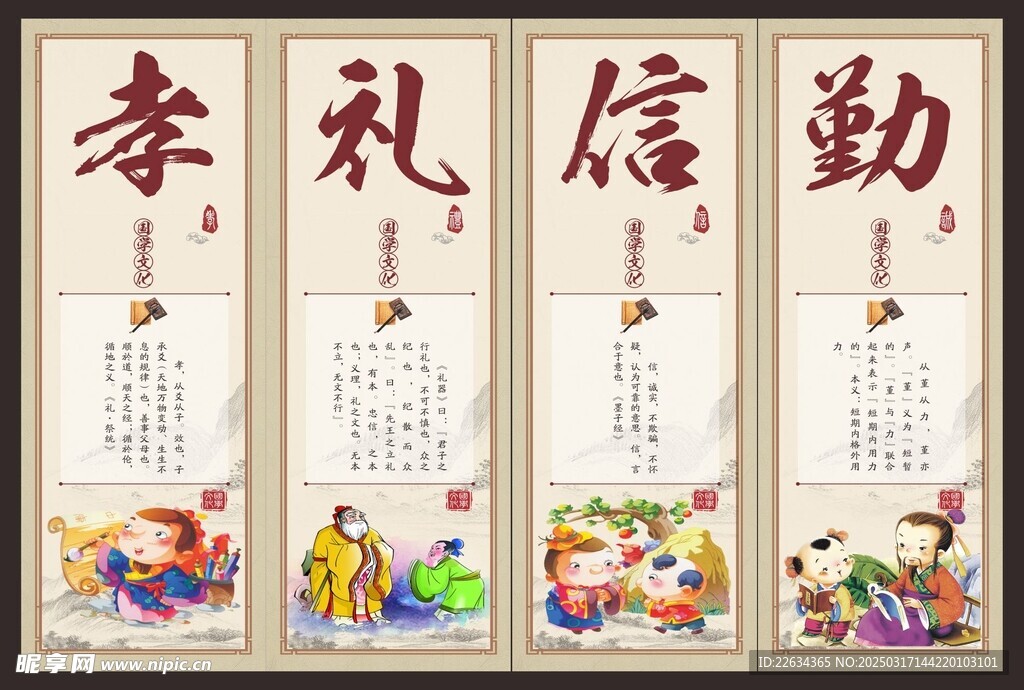 孝
孝
国学文化
孝，从爻从子。效也，子
承爻（天地万物变动、生生不
息的规律）也，善事父母也。
顺於道，顺天之经；循於伦，
循地之义。《礼·祭统》
國學文化
礼
禮
国学文化
《礼器》曰：『君子之
行礼也，不可不慎也，众之
纪也，纪散而众
乱』。曰：『先王之立礼
也，有本。忠信，之本
也；义理，礼之文也。无本
不立，无文不行』。
國學文化
信
信
国学文化
信，诚实，不欺骗，不怀
疑，认为可靠的意思。信，言
合于意也。《墨子经》
國學文化
勤
誠
国学文化
从堇从力，堇亦
声。『堇』义为『短暂
的』。『堇』与『力』联合
起来表示『短期内用力
的』。本义：短期内格外用
力。
國學文化
昵享网 www.nipic.cn
ID:22634365 NO:20250317144220103101